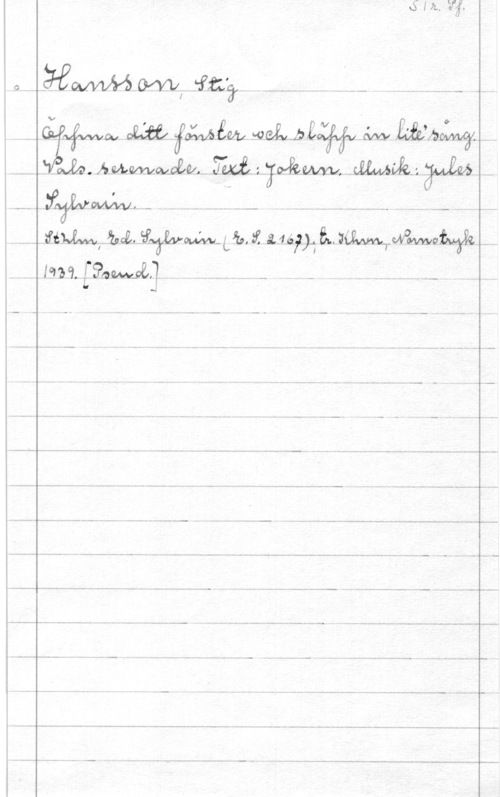 Hansson, Stig
Öppna ditt fönster och släpp in lite' sång.
Vals. serenade. Text: Jokern. Musik: Jules
Sylvain.
Sthlm, Ed. Sylvain (E. S. 2167); tr. Khvn, Nornotryk
1939. [Pseud.]